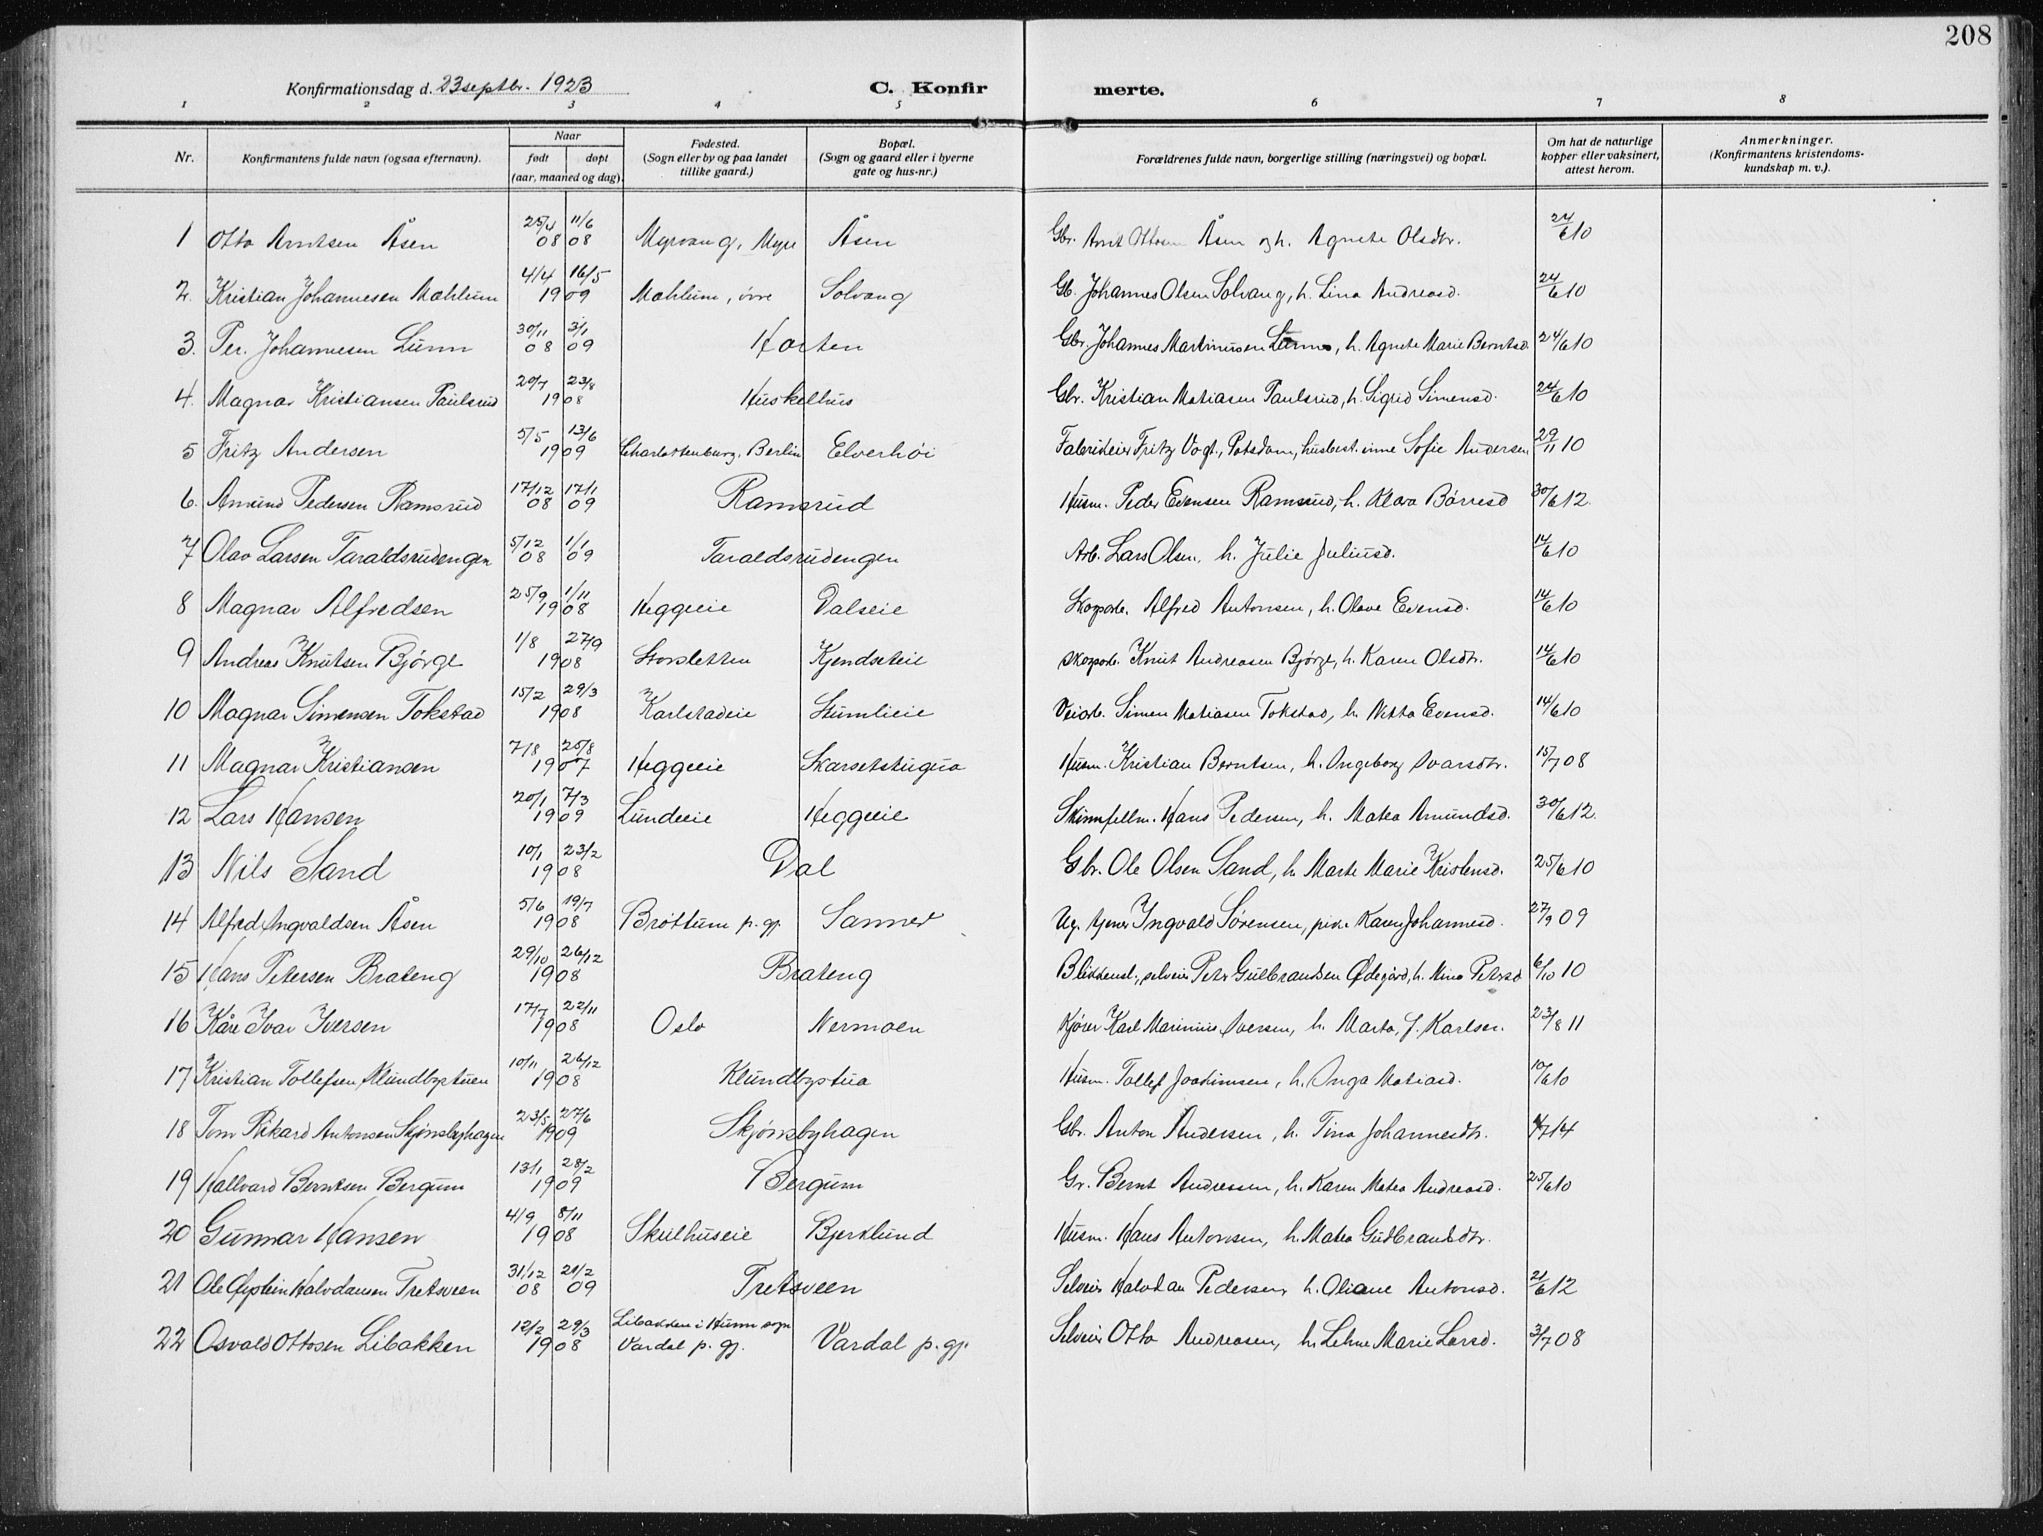 208
Konfirmationsdag d. 23 septbr. 1923 C. Konfir merte.
1 2 3 4 5 6 7 8
Nr. Konfirmantens fulde navn (ogsaa efternavn). Naar født døpt (aar, maaned og dag). Fødested. (Sogn eller by og paa landet tillike gaard.) Bopæl. (Sogn og gaard eller i byerne gate og hus-nr.) Forældrenes fulde navn, borgerlige stilling (næringsvei) og bopæl. Om hat de naturlige kopper eller vaksinert, attest herom. Anmerkninger. (Konfirmantens kristendoms-kundskap m. v.).
1 Otto Arntsen Åsen 25/4 08 11/6 08 Myrvang, Myre Åsen Gbr. Arnt Ottosen Åsen og h. Agnete Olsdtr. 24/6 10
2. Kristian Johannesen Mæhlum 4/4 16/5 1909 Mæhlum, øvre Solvang Gb. Johannes Olsen Solvang, h. Lina Andreasd. 24/6 10
3. Per Johannesen Lunn 30/11 08 3/1 09 Horten Gbr. Johannes Martinusen Lunn, h. Agnete Marie Berntsd. 24/6 10
4. Magnar Kristiansen Paulsrud 20/7 23/8 1908 Huskelhus Gbr. Kristian Matiasen Paulsrud, h. Sigrid Simensd. 24/6 10
5 Fritz Andersen 5/5 13/6 1909 Charlottenburg, Berlin Elverhøi Fabrikeier Fritz Vogt, Potsdam, husbest.inne Sofie Andersen 29/11 10
6. Amund Pedersen Ramsrud 17/12 08 17/1 09 Ramsrud Husm. Peder Evensen Ramsrud, h. Klara Børresd 30/6 12.
7 Olav Larsen Taraldsrudengen 5/12 08 1/1 09 Taraldsrudengen Arb. Lars Olsen, h. Julie Juliusd. 14/6 10
8 Magnar Alfredsen 25/9 1/11 1908 Heggeeie Dalseie Skogarb. Alfred Antonsen, h. Olave Evensd. 14/6 10
9 Andreas Knutsen Bjørge 1/8 27/9 1908 Storsletten Kjendseteie Skogarb. Knut Andreasen Bjørge, h. Karen Olsdtr. 14/6 10
10 Magnar Simensen Tokstad 15/2 29/3 1908 Karlstadeie Stumlieie Veiarb. Simen Matiasen Tokstad, h. Netta Evensd. 14/6 10
11 Magnar Kristiansen 7/8 25/8 1907 Heggeeie Skarsetstugua Husm. Kristian Berntsen, h. Ingeborg Ivarsdtr. 15/7 08
12 Lars Hansen 20/1 7/3 1909 Lundeeie Heggeeie Skinnfellm. Hans Pedersen, h. Matea Amundsd. 30/6 12.
13 Nils Sand 10/1 23/2 1908 Dal Gbr. Ole Olsen Sand, h. Marte Marie Kristensd. 25/6 10
14 Alfred Ingvaldsen Åsen 5/6 19/7 1908 Brøttum p. gj. Sanner Ug. tjener Ingvald Sørensen, pike Karen Johannesd. 27/9 09
15 Hans Petersen Brateng 29/10 26/12 1908 Brateng Blikkensl., selveier Peter Gulbrandsen Ødegård, h. Nina Petersd 6/10 10
16 Kåre Ivar Iversen 17/7 22/11 1908 Oslo Nermoen Kjører Karl Marinius Iversen, h. Marta, f. Karlsen. 23/8 11
17 Kristian Tollefsen Klundbystuen 10/11 26/12 1908 Klundbystua Husm. Tollef Joakimsen, h. Inga Matiasd. 10/6 10
18 Tom Rikard Antonsen Skjønsbyhagen 23/5 27/6 1909 Skjønsbyhagen Gbr. Anton Andersen, h. Tina Johannesdtr. 4/7 14
19 Hallvard Berntsen Bergum 13/1 28/2 1909 Bergum Gr. Bernt Andreasen, h. Karen Matea Andreasd. 25/6 10
20 Gunnar Hansen 4/9 8/11 1908 Skulhuseie Bjerklund Husm. Hans Antonsen, h. Matea Gudbrandsdtr.
21 Ole Øistein Halvdansen Tretsveen 31/12 08 21/2 09 Tretsveen Selveier Halvdan Pedersen, h. Oliane Antonsd. 21/6 12
22 Osvald Ottosen Libakken 12/2 29/3 1908 Libakken i Hunn sogn Vardal p. gj. Vardal p. gj. Selveier Otto Andreasen, h. Lehne Marie Larsd. 3/7 08